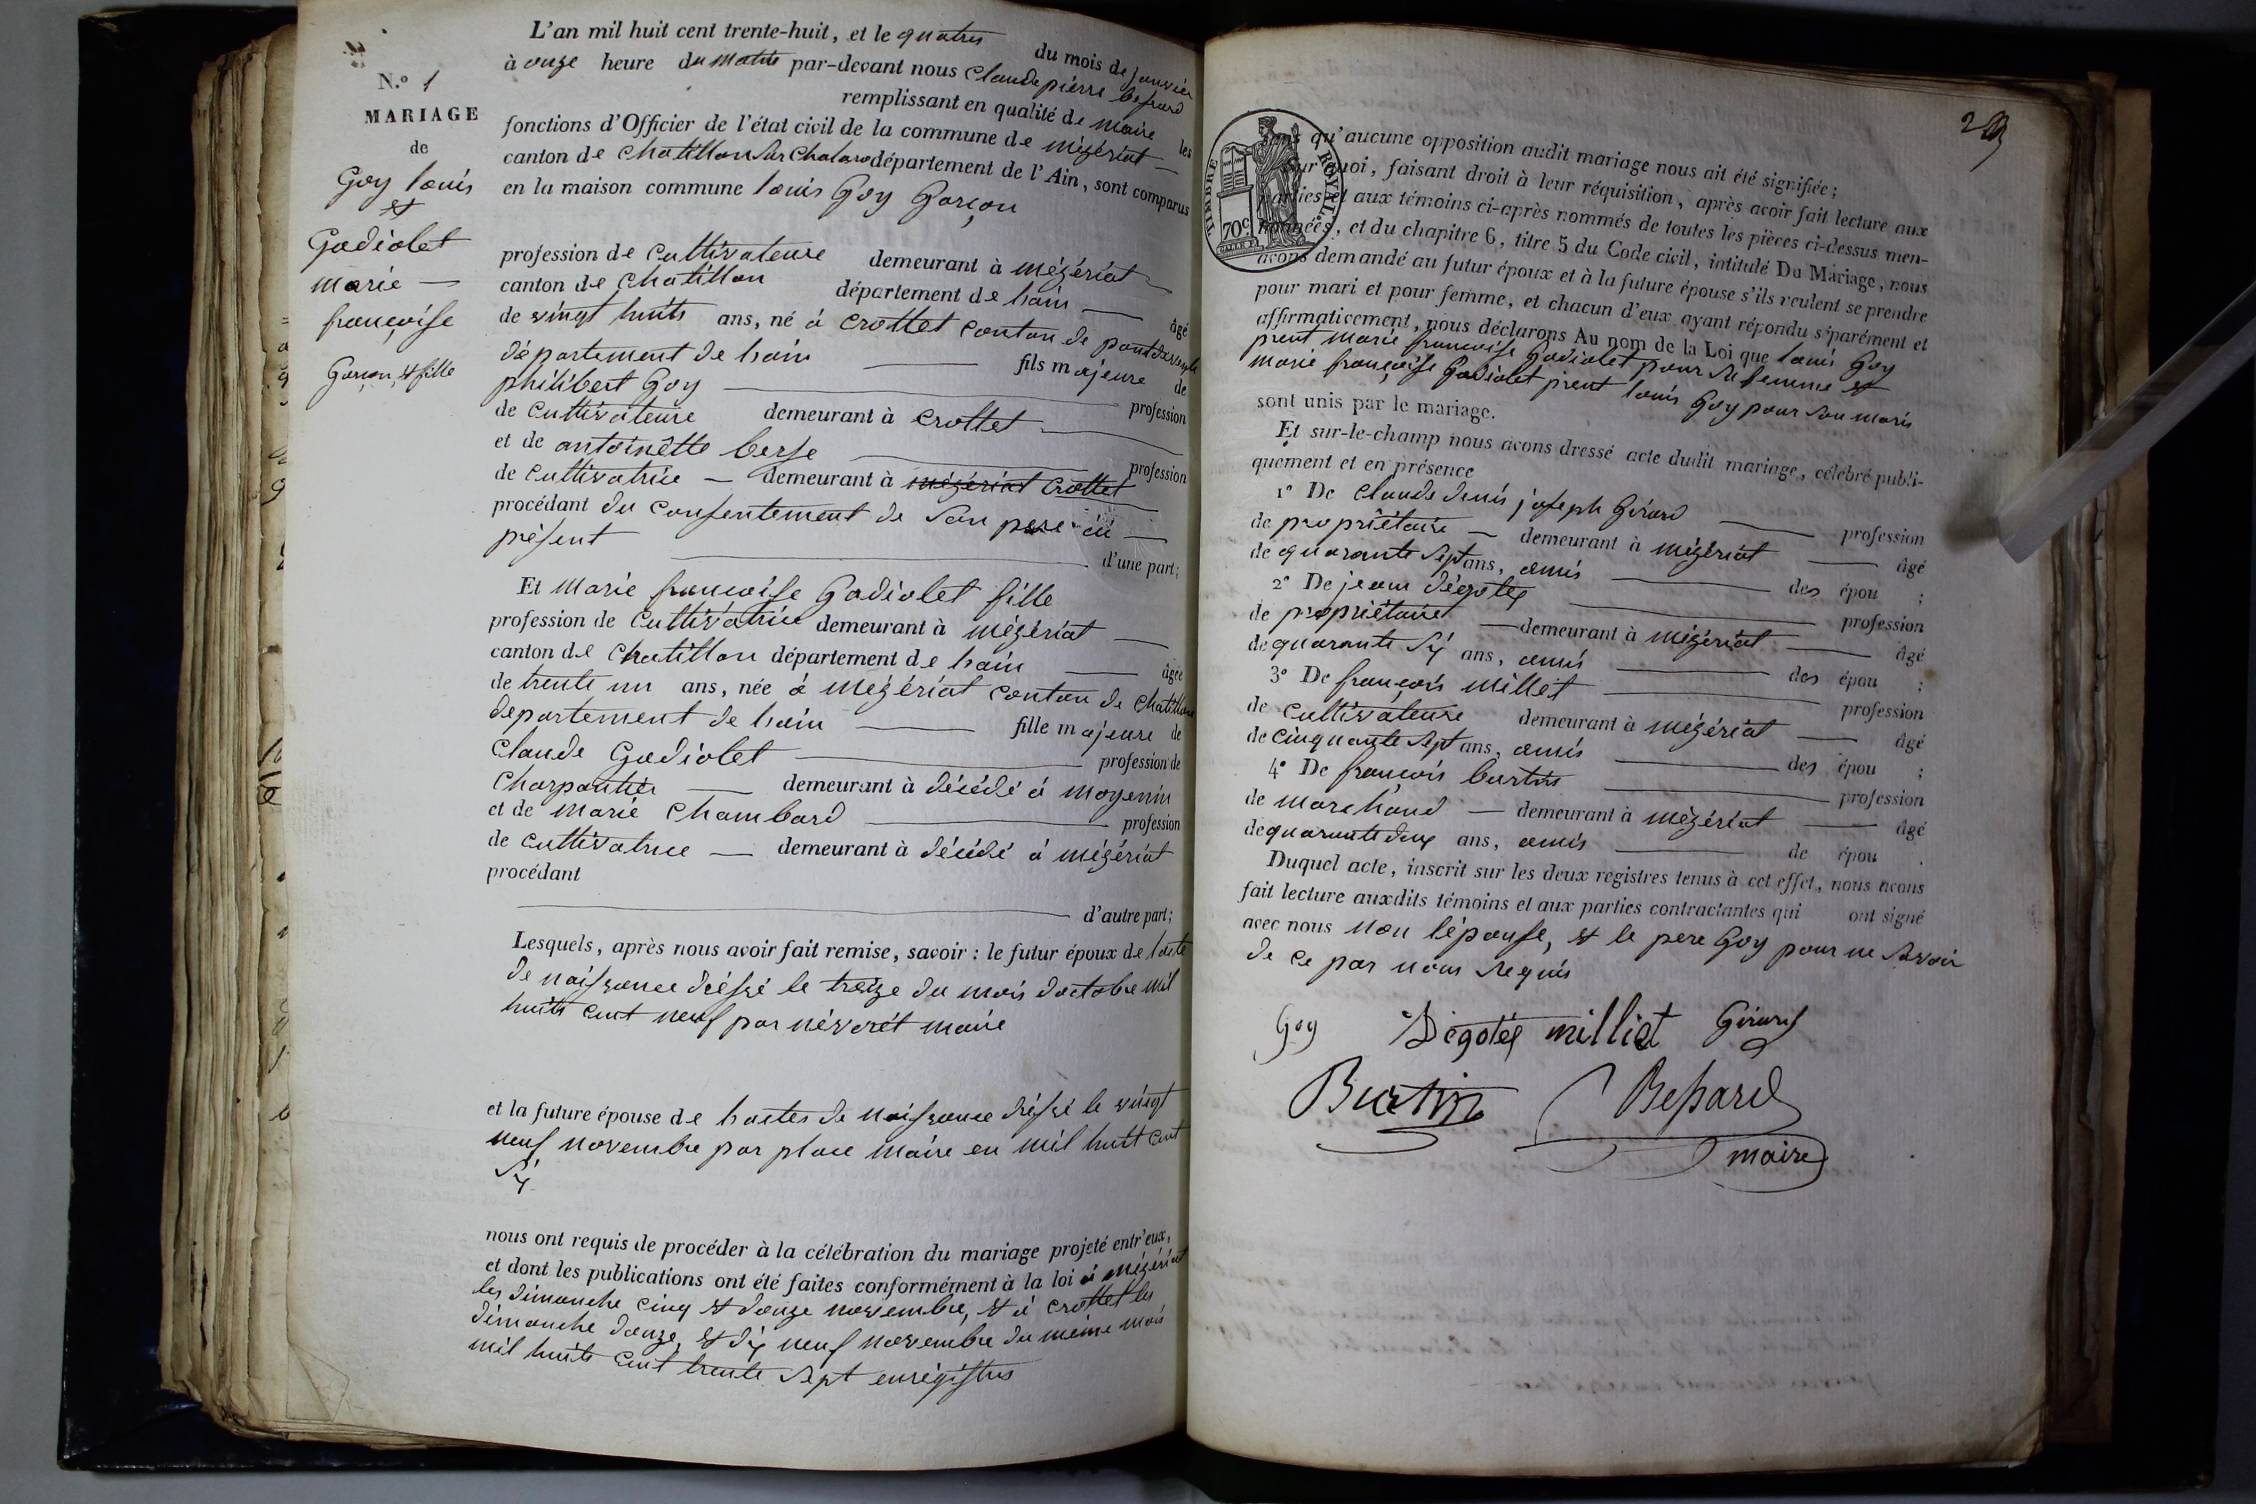 N.º 1
MARIAGE
de
Goy louis
et
Gadiolet
marie —
françoise
Garçon, et fille
L'an mil huit cent trente-huit, et le quatres du mois de janvier
à onze heure du matin par-devant nous claude pierre besard
remplissant en qualité de maire les
fonctions d'Officier de l'état civil de la commune de mézériat
canton de chatillon sur chalaro département de l'Ain, sont comparus
en la maison commune louis Goy Garçon
profession de cultivateure demeurant à mézériat
canton de chatillon département de lain âgé
de vingt huits ans, né à crottet conton de pontdevesyle
département de lain fils majeure de
philibert Goy profession
de cultivateure demeurant à crottet
et de antoinette berse profession
de cultivatrice — demeurant à mézériat crottet
procédant du consentement de son pere ici
présent d'une part;
Et marie françoise Gadiolet fille
profession de cultivatrice demeurant à mézériat
canton de chatillon département de lain âgée
de trente un ans, née à mézériat conton de chatillon
département de lain fille majeure de
claude Gadiolet profession de
charpantier demeurant à décédé à moyenin
et de marie chambard profession
de cultivatrice — demeurant à décédé à mézériat
procédant
d'autre part;
Lesquels, après nous avoir fait remise, savoir : le futur époux de l'acte
de naissance dréssé le treize du mois doctobre mil
huits cent neuf par névorét maire
et la future épouse de lactes de naissance dréssé le vingt
neuf novembre par place maire en mil huit cent
sÿ
nous ont requis de procéder à la célébration du mariage projeté entr'eux,
et dont les publications ont été faites conformément à la loi à mézériat
les dimanche cinq et douze novembre, et à crottet les
dimanche douze, et dix neuf novembre du même mois
mil huits cent trente sept enrégistres
TIMBRE ROYAL
70c.
qu'aucune opposition audit mariage nous ait été signifiée;
quoi, faisant droit à leur réquisition, après avoir fait lecture aux
parties et aux témoins ci-après nommés de toutes les pièces ci-dessus men-
tionnées, et du chapitre 6, titre 5 du Code civil, intitulé Du Mariage, nous
avons demandé au futur époux et à la future épouse s'ils veulent se prendre
pour mari et pour femme, et chacun d'eux ayant répondu séparément et
affirmativement, nous déclarons Au nom de la Loi que louis Goy
prent marie françoise Gadiolet pour sa femme et
marie françoise Gadiolet prent louis Goy pour son maris
sont unis par le mariage.
Et sur-le-champ nous avons dressé acte dudit mariage, célébré publi-
quement et en présence
1º De claude denis joseph Girard profession
de propriétaire — demeurant à mézériat âgé
de quarante sept ans, amis des épou ;
2º De jean dégotex profession
de propriétaire — demeurant à mézériat âgé
de quarante sÿ ans, amis des épou ;
3º De françois millet profession
de cultivateure demeurant à mézériat âgé
de cinquante sept ans, amis des épou ;
4º De françois burtin profession
de marchand — demeurant à mézériat âgé
de quarante deux ans, amis de épou .
Duquel acte, inscrit sur les deux registres tenus à cet effet, nous avons
fait lecture auxdits témoins et aux parties contractantes qui ont signé
avec nous non lépouse, et le pere Goy pour ne savoir
de ce par nous requis
Goy Dégotex milliet Girard
Burtin Besard
maire